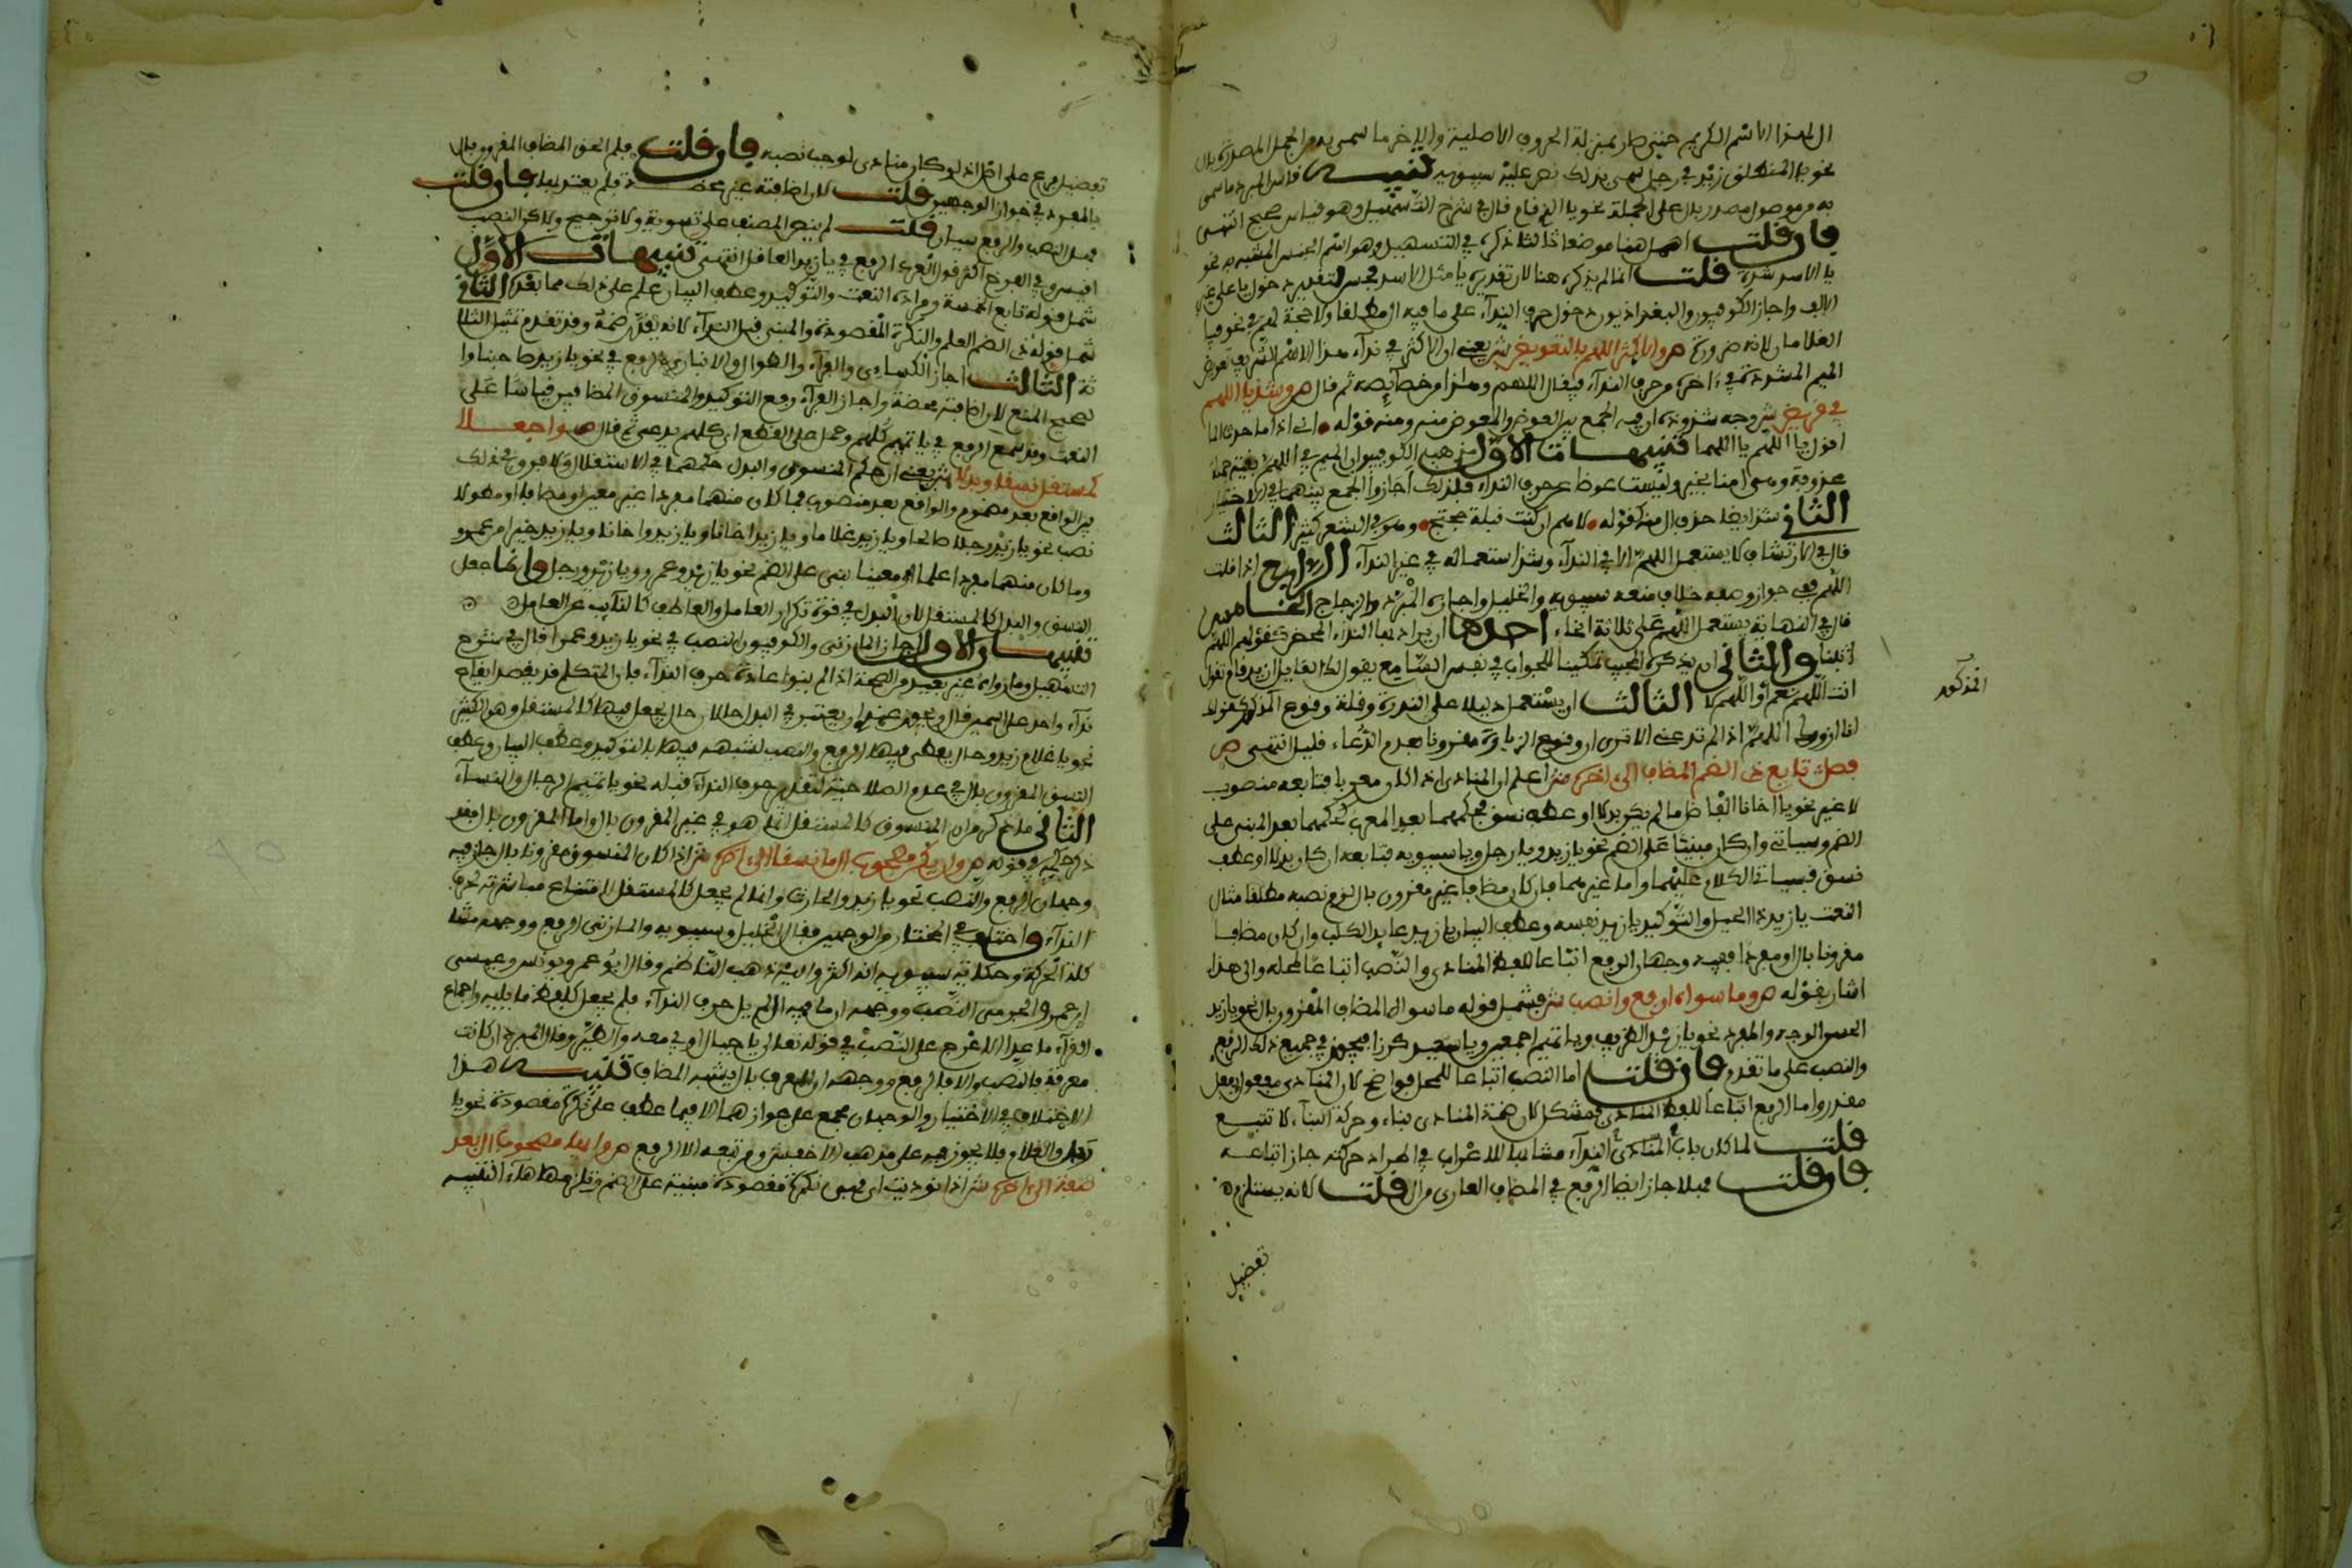 ال لهذا الاسم الكريم حيث صار بمنزلة الحروف الاصلية والاخر ما سمي به من الجمل المصدرة بال
نحو يا المنطلق زيد في رجل سمي بذلك نص عليه سيبويه تنبيه قاس المبرد ما سمي
به من موصول مصدر بال على الجملة نحو يا الذي قام قال في شرح التسهيل وهو قياس صحيح انتهى
فان قلت اهمل هنا موضعا ثالثا ذكره في التسهيل وهو اسم الجنس المشبه به نحو
يا الاسد شدة قلت انما لم يذكره هنا لان تقديره يا مثل الاسد فحسن لتقدير دخول يا على غير
الالف واجاز الكوفيون والبغداديون دخول حرف النداء على ما فيه ال مطلقا ولا حجة لهم في نحو فيا
الغلامان لانه ضرورة ص والاكثر اللهم بالتعويض ش يعني ان الاكثر في نداء هذا الاسم الشريف تعويض
الميم المشددة في ءاخره من حرف النداء فيقال اللهم وهذا من خصائصه ثم قال ص وشذ يا اللهم
في قريض ش وجه شذوذه ان فيه الجمع بين العوض والمعوض منه ومنه قوله اني اذا ما حدث الما
اقول يا اللهم يا اللهما تنبيهات الاول مذهب الكوفيين ان الميم في اللهم بقية جملة
محذوفة وهي امنا بخير وليست عوضا عن حرف النداء فلذلك اجازوا الجمع بينهما في الاختيار
الثاني شذ ايضا حذف ال منه كقوله لاهم ان كنت قبلت حجتج وهو في الشعر كثير الثالث
قال في الارتشاف لا يستعمل اللهم الا في النداء وشذ استعماله في غير النداء الرابع اذا قلت
اللهم ففي جواز وصفه خلاف منعه سيبويه والخليل واجازه المبرد والزجاج الخامس
قال في النهاية يستعمل اللهم على ثلاثة انحاء احدها ان يراد بها النداء المحض كقولهم اللهم
اثبنا والثاني ان يذكره المجيب تمكينا للجواب في نفس السامع يقول لك القايل ازيد قام تقول
انت اللهم نعم او اللهم لا الثالث ان يستعمل دليلا على الندرة وقلة وقوع المذكور كقولك
انا ازورك اللهم اذا لم تدعني الا ترى ان وقوع الزيارة مقرونا بعدم الدعاء قليل انتهى ص
فصل تابع ذي الضم المضاف الى اخره ش اعلم ان المنادى اذا كان معربا فتابعه منصوب
لا غير نحو يا اخانا الفاضل ما لم يكن بدلا او عطف نسق فحكمهما بعد المعرب كحكمهما بعد المبني على
الضم وسياتي وان كان مبنيا على الضم نحو يا زيد ويا رجل ويا سيبويه فتابعه ان كان بدلا او عطف
نسق فسياتي الكلام عليهما واما غيرهما فان كان مضافا غير مقرون بال لزم نصبه مطلقا مثال
النعت يا زيد ذا الحيل والتوكيد يا زيد نفسه وعطف البيان يا زيد عايد الكلب وان كان مضافا
مقرونا بال او مفردا ففيه وجهان الرفع اتباعا للفظ المنادى والنصب اتباعا لمحله والى هذا
اشار بقوله ص وما سواه ارفع وانصب ش فشمل قوله ما سواه المضاف المقرون بال نحو يا زيد
الحسن الوجه والمفرد نحو يا زيد الظريف ويا تميم اجمعين ويا سعيد كرز فيجوز في جميع ذلك الرفع
والنصب على ما تقدم فان قلت اما النصب اتباعا للمحل فواضح لان المنادى مفعول بفعل
مقدر واما الرفع اتباعا للفظ المنادى فمشكل لان ضمة المنادى بناء وحركة البناء لا تتبع
قلت لما كان بناء المنادى النداء مشابها للاعراب في اطراد حركته جاز اتباعه
فان قلت فهلا جاز ايضا الرفع في المضاف العاري من ال قلت لانه يستلزم
تفضيل
المذكور
تفضيل فرع على اصل اذ لو كان منادى لوجب نصبه فان قلت فلم الحق المضاف المقرون بال
بالمفرد في جواز الوجهين قلت لان اضافته غير محضة فلم يعتد بها فان قلت
فهل النصب والرفع سيان قلت لم ينص المصنف على تسوية ولا ترجيح ولاكن النصب
اقيس وفي الفرخ اكثر قول العرب الرفع في يا زيد العاقل انتهى تنبيهات الاول
شمل قوله تابع الخمسة ومراده النعت والتوكيد وعطف البيان علم على ذلك مما بعده الثاني
شمل قوله ذي الضم العلم والنكرة المقصودة والمبني قبل النداء لانه يقدر ضمه وقد تقدم تمثيل الثلا
ثة الثالث اجاز الكسائي والفراء والطوال وابن الانباري الرفع في نحو يا زيد صاحبنا وا
لصحيح المنع لان اضافته محضة واجاز الفراء رفع التوكيد والمنسوق المضافين قياسا على
النعت وقد سمع الرفع في يا تميم كلهم وحمل على القطع اي كلهم يدعى ثم قال ص واجعلا
كمستقل نسقا وبدلا ش يعني ان حكم المنسوق والبدل حكمهما في الاستقلال ولا فرق في ذلك
بين الواقع بعد مضموم والواقع بعد منصوب فما كان منهما مفردا غير معين او مضافا او مطولا
نصب نحو يا زيد رجلا صالحا ويا زيد غلاما ويا زيد اخانا ويا زيد واخانا ويا زيد خيرا من عمرو
وما كان منهما مفردا علما او معينا بني على الضم نحو يا زيد وعمرو ويا زيد ورجل وانما جعل
النسق والبدل كالمستقل لان البدل في قوة تكرار العامل والعاطف كالنائب عن العامل
تنبيهان الاول اجاز المازني والكوفيون النصب في نحو يا زيد وعمرا قال في شرح
التسهيل وما رواه غير بعيد من الصحة اذا لم ينو اعادة حرف النداء فان المتكلم قد يقصد ايقاع
نداء واحد على اسمين قال ويجوز عندي ان يعتبر في البدل حالان حال يجعل فيها كالمستقل وهو الكثير
نحو يا غلام زيد وحال يعطى فيها الرفع والنصب لشبهه فيها بالتوكيد وعطف البيان وعطف
النسق المقرون بال في عدم الصلاحية لتقدير حرف النداء قبله نحو يا تميم الرجال والنساء
الثاني ما ذكر من ان المنسوق كالمستقل انما هو في غير المقرون بال واما المقرون بال فقد
ذكر حكمه في قوله ص وان يكن مصحوب ال ما نسقا الى آخره ش اذا كان المنسوق مقرونا بال جاز فيه
وجهان الرفع والنصب نحو يا زيد والحارث وانما لم يجعل كالمستقل لامتناع مباشرته لحرف
النداء واختلف في المختار من الوجهين فقال الخليل وسيبويه والمازني الرفع ووجهه مشا
كلة الحركة وحكاية سيبويه انه اكثر واليه ذهب الناظم وقال ابو عمرو ويونس وعيسى
ابن عمر والجرمي النصب ووجهه ان ما فيه ال لم يل حرف النداء فلم يجعل كلفظ ما يليه واجماع
القراء ما عدا الاعرج على النصب في قوله تعالى يا جبال اوبي معه والطير وقال المبرد ان كانت
معرفة فالنصب والا فالرفع ووجهه ان المعرف بال يشبه المضاف تنبيه هذا
الاختلاف في الاختيار والوجهان مجمع على جوازهما الا فيما عطف على نكرة مقصودة نحو يا
رجل والغلام فلا يجوز فيه على مذهب الاخفش ومن تبعه الا الرفع ص وايها مصحوب ال بعد
صفة الى اخره ش اذا نوديت اي فهي نكرة مقصودة مبنية على الضم وتلزمها هاء التنبيه